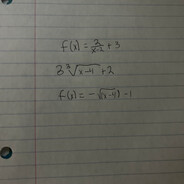 f(x) = 2/(x-2) + 3
3∛(x-4) + 2
f(x) = -√(x-4) - 1